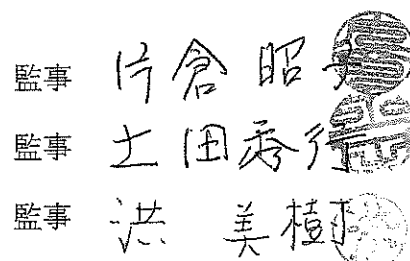 監事 片倉昭
監事 土田秀行
監事 洪 美樹